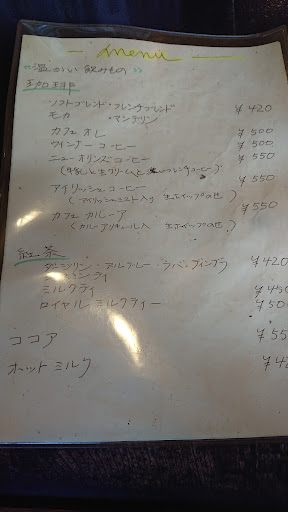 menu
"温かい飲みもの"
珈琲
ソフトブレンド・フレンチブレンド ¥420
モカ ・マンデリン
カフェオレ ¥500
ウィンナーコーヒー ¥500
ニューオリンズコーヒー ¥550
アイリッシュコーヒー ¥550
(アイリッシュミスト入り 生ホイップのせ)
カフェカルーア ¥550
(カルーアリキュール入 生ホイップのせ)
紅茶
ダージリン・アールグレー・ラバンディンブラ ¥420
ミルクティ ¥450
ロイヤルミルクティー ¥50
ココア ¥55
ホットミルク ¥4